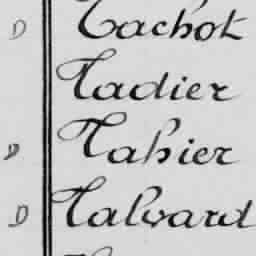 D Tachot
Tadier
D Tahier
D Talvard